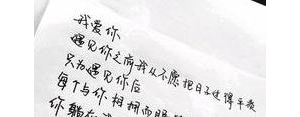 我爱你
遇见你之前我从不愿把日子过得平淡
只为遇见你后
每个与你相拥而眠
你躺在